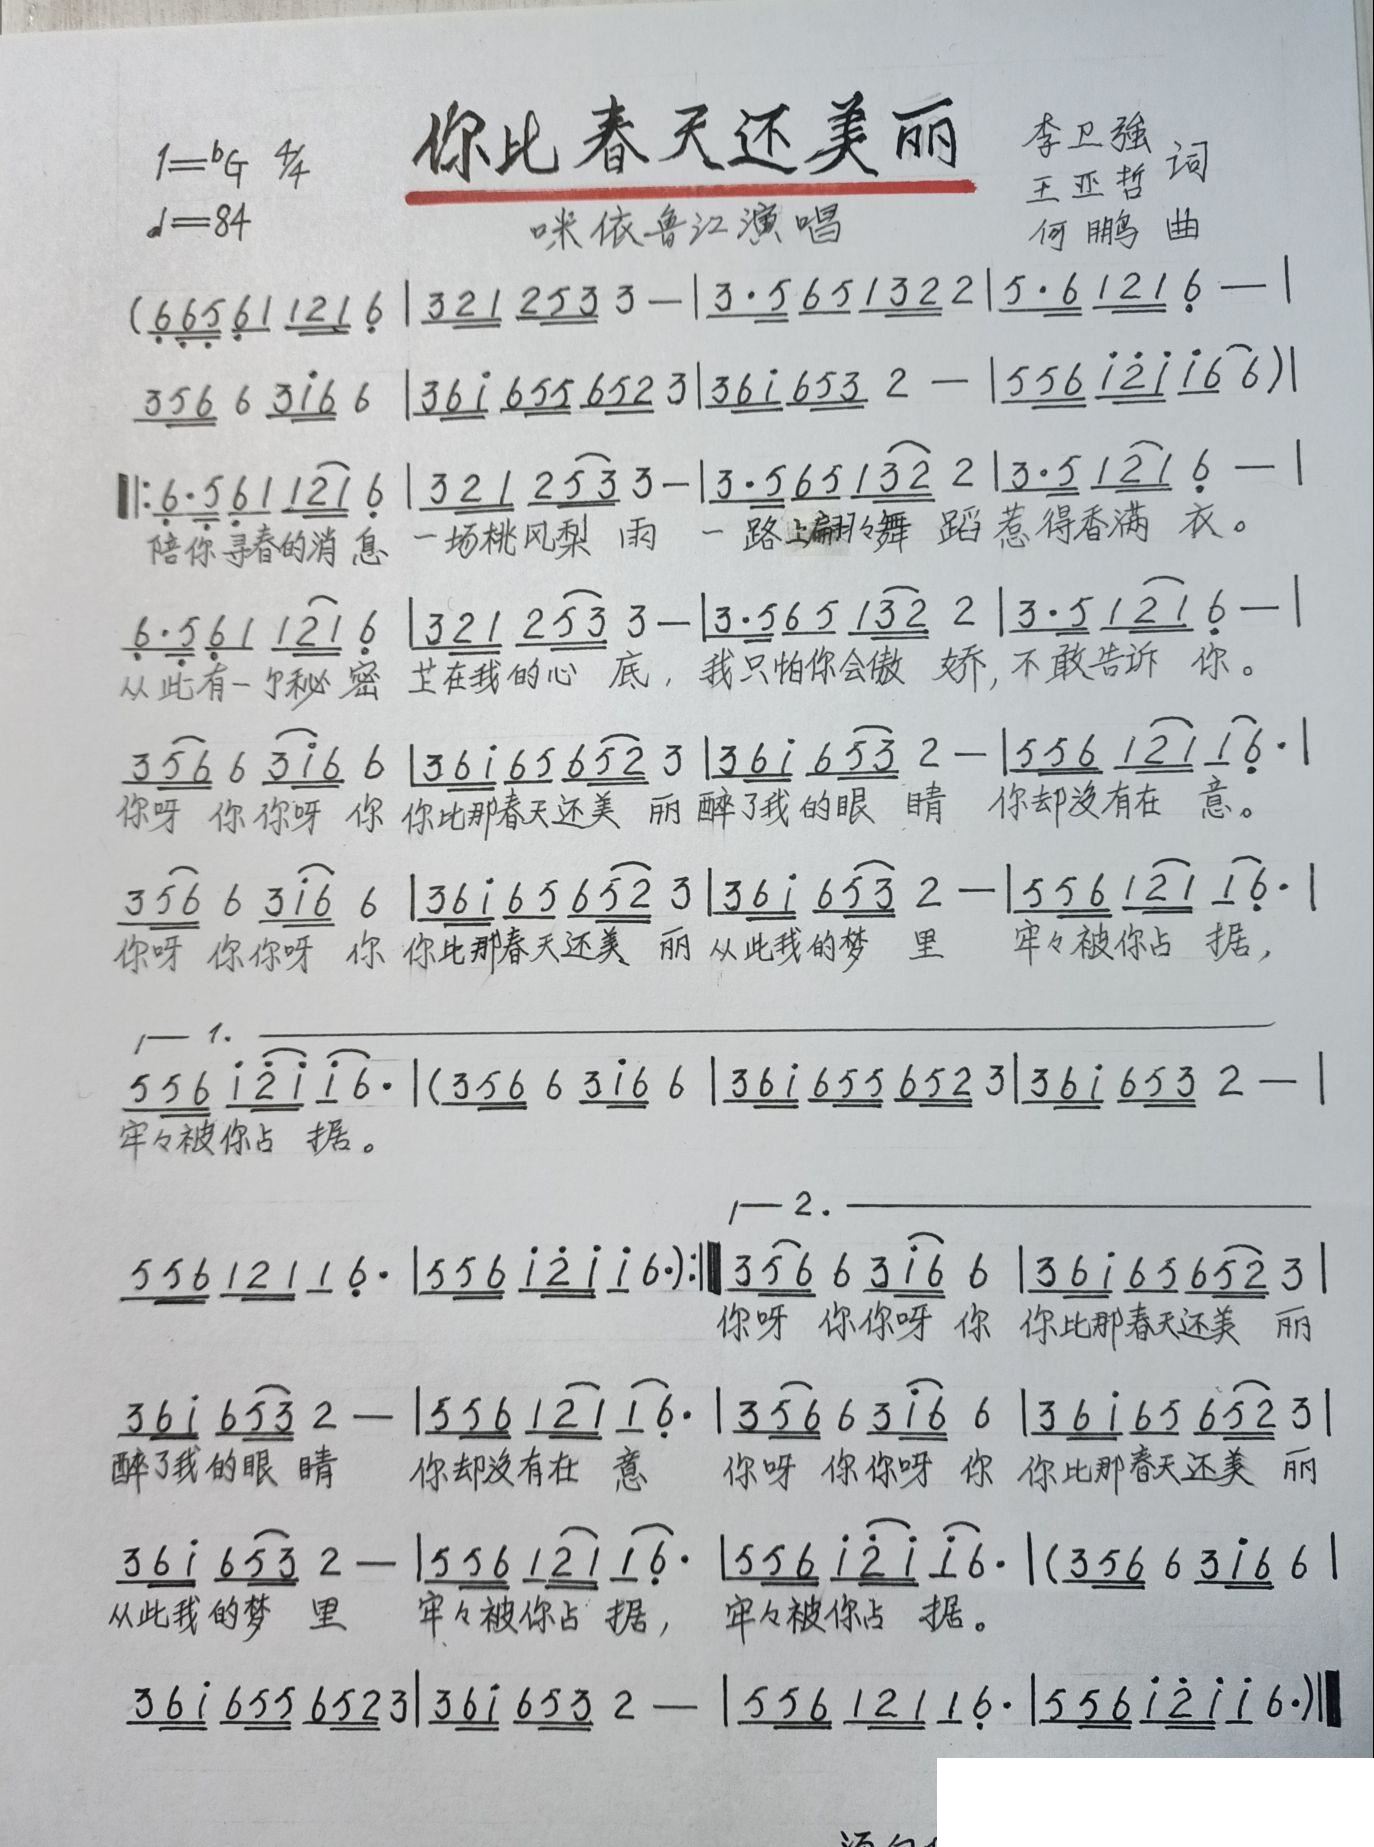 你比春天还美丽
1=ᵇG 4/4
♩=84
咪依鲁江演唱
李卫强
王亚哲 词
何鹏 曲
(6̣6̣5̣6̣1 1216̣ |321 2533— |3·56513222|5·61216̣— |
3566 3i̇66 |36i̇6556523|36i̇6532— |556i̇2̇i̇i̇66)|
‖:6̣·5̣6̣11216̣ |3212533—|3·5651322|3·51216̣— |
陪你寻春的消息 一场桃风梨雨 一路上翩翩々舞蹈惹得香满衣。
6̣·5̣6̣11216̣ |3212533—|3·5651322 |3·51216̣— |
从此有一个秘密 芷在我的心底, 我只怕你会傲娇, 不敢告诉你。
35663i̇66 |36i̇656523|36i̇6532—|55612116̣·|
你呀你你呀你 你比那春天还美丽 醉了我的眼睛 你却没有在意。
35663i̇66 |36i̇656523|36i̇6532—|55612116̣·|
你呀你你呀你 你比那春天还美丽 从此我的梦里 牢々被你占据,
1.
556i̇2̇i̇i̇6·|(35663i̇66 |36i̇6556523|36i̇6532— |
牢々被你占据。
2.
55612116̣· |556i̇2̇i̇i̇6·):‖35663i̇66 |36i̇656523|
你呀你你呀你 你比那春天还美丽
36i̇6532— |55612116̣· |35663i̇66 |36i̇656523|
醉了我的眼睛 你却没有在意 你呀你你呀你 你比那春天还美丽
36i̇6532— |55612116̣· |556i̇2̇i̇i̇6· |(35663i̇66 |
从此我的梦里 牢々被你占据, 牢々被你占据。
36i̇6556523|36i̇6532— |55612116̣· |556i̇2̇i̇i̇6·)‖